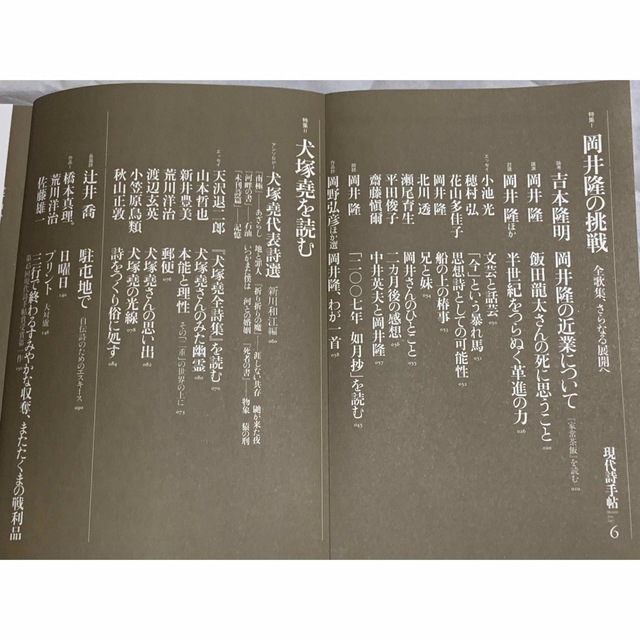 現代詩手帖
6
特集Ⅰ
岡井隆の挑戦
全歌集、さらなる展開へ
吉本隆明 岡井隆の近業について 『家常茶飯』を読む 010
岡井隆 飯田龍太さんの死に思うこと 020
岡井隆ほか 半世紀をつらぬく革進の力 026
エッセイ
小池光 文芸と話芸
穂村弘 「今」という暴れ馬
花山多佳子 思想詩としての可能性
岡井隆 船の上の椿事
北川透 兄と妹
瀬尾育生 岡井さんのひとこと
平田俊子 二カ月後の感想
齋藤愼爾 中井英夫と岡井隆
岡井隆 「二〇〇七年 如月抄」を読む 045
岡野弘彦ほか選 岡井隆、わが一首
特集Ⅱ
犬塚堯を読む
アンソロジー
犬塚堯代表詩選 新川和江編
『南極』――あざらし 地と罪人 『折り折りの魔』――涯しない共存 鼬が来た夜
『河畔の書』――石油 いつかまた僕は 河との婚姻 『死者の書』――物象 猿の刑
『未刊詩篇』――記憶
エッセイ
天沢退二郎 『犬塚堯全詩集』を読む 070
山本哲也 犬塚堯さんのみた幽霊
新井豊美 本能と理性 その「二重」の世界の上に 075
荒川洋治 郵便
渡辺玄英 犬塚堯さんの思い出
小笠原鳥類 犬塚堯の光線
秋山正敦 詩をつくり俗に処す
辻井喬 駐屯地で 自伝詩のためのエスキース
作品
橋本真理 日曜日
荒川洋治 プリント
佐藤雄一 三行で終わるすみやかな収奪、またたくまの戦利品